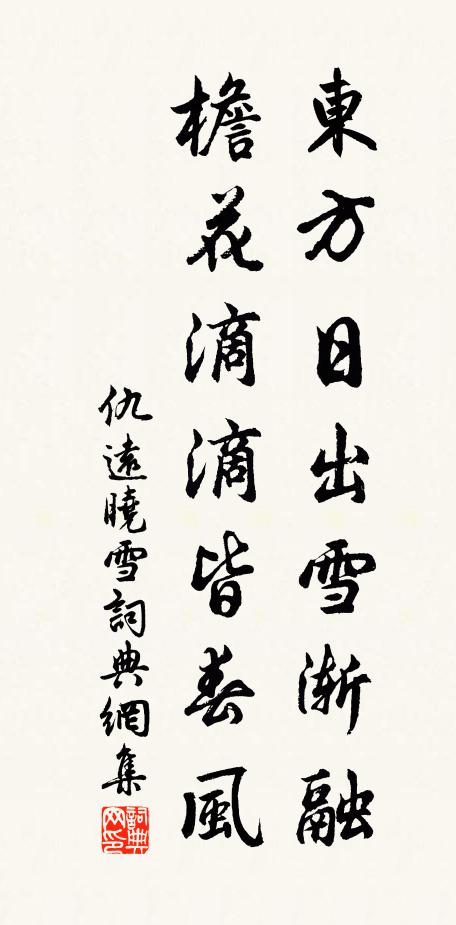 東方日出雪漸融
檐花滴滴皆春風
仇遠曉雪詞典網集
詞典网印